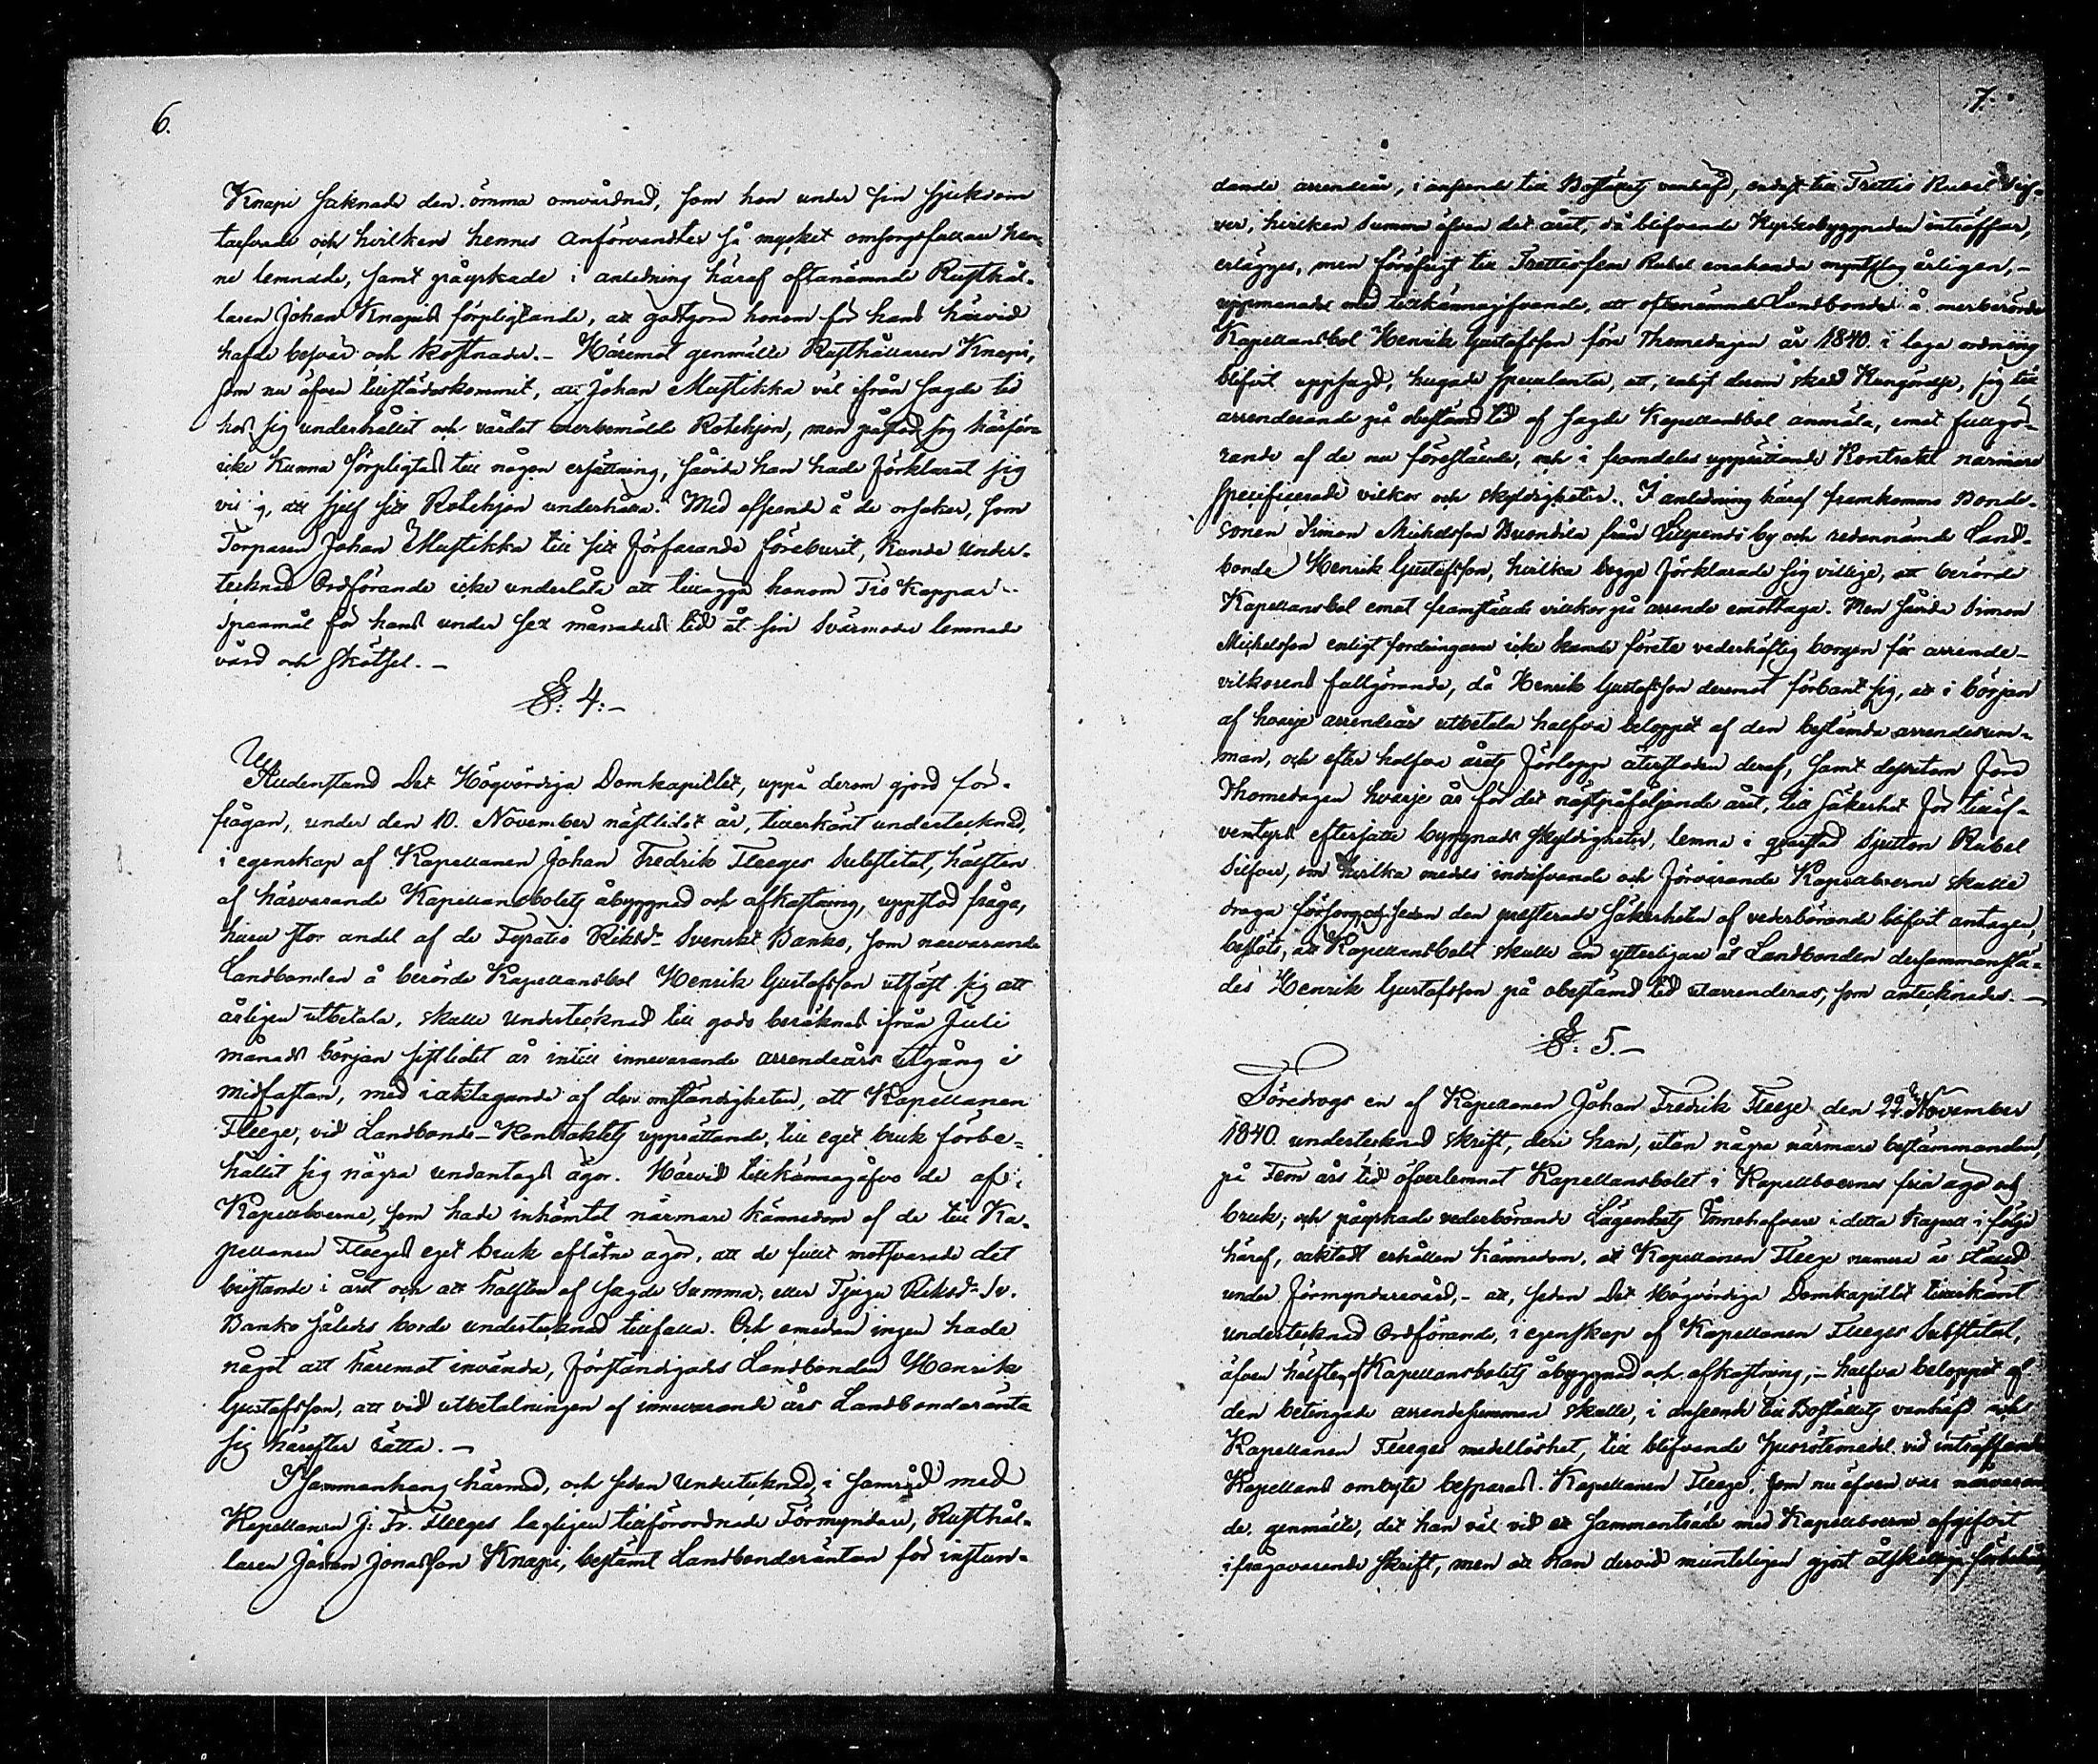 6.
Knapi saknade den ömma omvårdnad, som hon under sin sjukdom
tarfvade och hvilken hennes anförvandter så mycket omsorgsfullare hen-
ne lemnade, samt påyrkade i anledning häraf oftanämnde Rusthål-
laren Johan Knapis förpligtande, att godtgöra honom för hans härvid
hafde besvär och kostnader. – Häremot genmälte Rusthållaren Knapi,
som nu äfven tillstädeskommit, att Johan Mustikka väl ifrån sagde tid
hos sig underhållit och vårdat merbemälde Rotehjon, men påstod sig härför
icke kunna förpligtas till någon ersättning, såvida han hade förklarat sig
vilig, att sjelf sitt Rotehjon underhålla. Med afseende å de orsaker, som
Torparen Johan Mustikka till sitt förfarande föreburit, kunde under-
tecknad Ordförande icke underlåta att tillägga honom Tio Kappar
Spannmål för hans under sex månaders tid åt sin Svärmoder lemnade
vård och skötsel. –
§. 4. –
Alldenstund Det Högvördiga Domkapitlet, uppå derom gjord för-
frågan, under den 10. November nästledit år, tillerkänt undertecknad,
i egenskap af Kapellanen Johan Fredrik Fleeges Substitut, hälften
af härvarande Kapellansbolets åbyggnad och afkastning, uppstod fråga,
huru stor andel af de Fyratio Riksd. Svenskt Banko, som närvarande
Landbonden å berörde Kapellansbol Henrik Gustafsson utfäst sig att
årligen utbetala, skulle undertecknad till godo beräknas ifrån Juli
månads början sistledit år intill innevarande arrendeårs utgång i
midfastan, med iakttagande af den omständigheten, att Kapellanen
Fleege, vid Landbonde-Kontraktets upprättande, till eget bruk förbe-
hållit sig några undantags ägor. Härvid tillkännagåfvo de af
Kapellboerne, som hade inhämtat närmare kännedom af de till Ka-
pellanen Fleeges eget bruk aflåtne ägor, att de fullt motsvarade det
bristande i året och att hälften af sagde Summa, eller Tjugu Riksd. Sv.
Banko således borde undertecknad tillfalla. Och emedan ingen hade
något att häremot invända, förständigades Landbonden Henrik
Gustafsson, att vid utbetalningen af innevarande års Landbonderänta
sig härefter rätta. –
I sammanhang härmed, och sedan undertecknad, i samråd med
Kapellanen J: Fr. Fleeges lagligen tillförordnade Förmyndare, Rusthål-
laren Johan Jonasson Knapi, bestämt Landbonderäntan för instun-
7.
dande arrendeår, i anseende till Boställets vanhäfd, endast till Trettio Rubel Silf-
ver, hvilken Summa äfven det året, då blifvande Kyrkobyggnaden inträffar,
erlägges, men föröfrigt till Trettiofem Rubel enahanda myntslag årligen, –
uppmanades med tillkännagifvande, att oftanämnde Landbonde å merberörde
Kapellansbol Henrik Gustafsson före Thomedagen år 1840 i laga ordning
blifvit uppsagd, hugade Spekulanter, att, enligt derom skedd Kungörelse, sig till
arrenderande på obestämd tid af sagde Kapellansbol anmäla, emot fullgö-
rande af de nu föreslående, och i framdeles upprättande Kontrakt närmare
specificerade vilkor och skyldigheter. I anledning häraf framkommo Bonde-
sonen Simon Michelsson från by och redannämnde Land-
bonde Henrik Gustafsson, hvilka begge förklarade sig villige, att berörde
Kapellansbol emot framställde villkor på arrende emottaga. Men såvida Simon
Michelsson enligt fordringarne icke kunde förete vederhäftig borgen för arrende-
vilkorens fullgörande, då Henrik Gustafsson deremot förband sig, att i början
af hvarje arrendeår utbetala halfva beloppet af den bestämda arrendesum-
man, och efter halfva årets förlopp återstoden deraf, samt dessutom före
Thomedagen hvarje år för det nästpåföljande året, till säkerhet för till äf-
ventyrs eftersatte byggnads skyldigheter, lemna i Sjutton Rubel
Silfver, om hvilka medels indrifvande och förvarande Kapellboerne skulle
draga försorg, och sedan den presterade säkerheten af vederbörande blifvit antagen,
beslöts, att Kapellansbolet skulle än ytterligare åt Landbonden dersammanstä-
des Henrik Gustafsson på obestämd tid utarrenderas, som antecknades. –
§. 5. –
Föredrogs en af Kapellanen Johan Fredrik Fleege den 22. November
1840. undertecknad skrift, deri han, utan några närmare bestämmanden,
på Fem års tid öfverlemnat Kapellansbolet i Kapellboernes fria ägo och
bruk; och påyrkade vederbörande Lägenhets Innehafvare i detta Kapell i följe
häraf, oaktadt erhållen kännedom, att Kapellanen Fleege numera är ställd
under förmyndarevård, – att, sedan Det Högvördiga Domkapitlet tillerkänt
undertecknad Ordförande, i egenskap af Kapellanen Fleeges Substitut,
äfven hälften af Kapellansbolets åbyggnad och afkastning, – halfva beloppet af
den betingade arrendesumman skulle, i anseende till Boställets vanhäfd och
Kapellanen Fleeges medellöshet, till blifvande husrötemedel vid inträffande
Kapellans ombyte besparas. Kapellanen Fleege, som nu äfven var närvaran-
de, genmälte, det han väl vid ett sammanträde med Kapellboerne afgifvit
ifrågavarande skrift, men att han dervid muntligen gjort åtskilliga förbehåll,